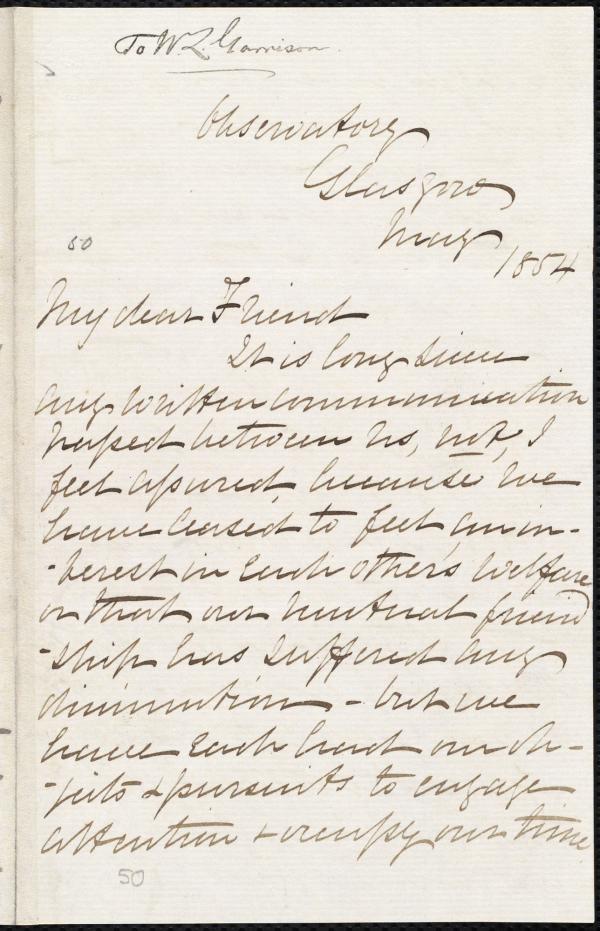 To W L Garrison
Observatory
Glasgow
May 1854
50
My dear Friend
It is long since
any written communication
passed between us, not, I
feel assured, because we
have ceased to feel an in-
-terest in each other's welfare
or that our mutual friend
-ship has suffered any
diminution - but we
have each had our ob-
-jects & pursuits to engage
attention & occupy our time
50